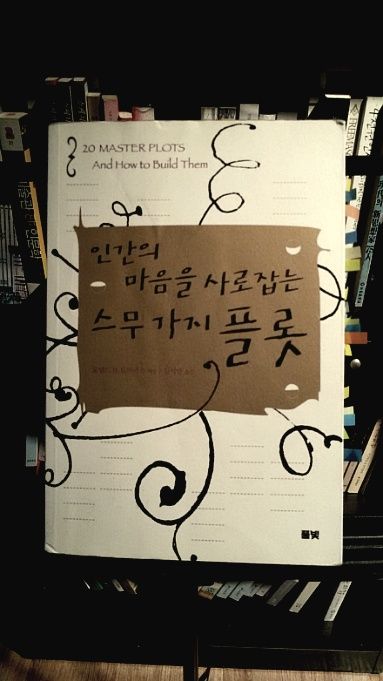 20 MASTER PLOTS
And How to Build Them
인간의
마음을 사로잡는
스무 가지 플롯
풀빛